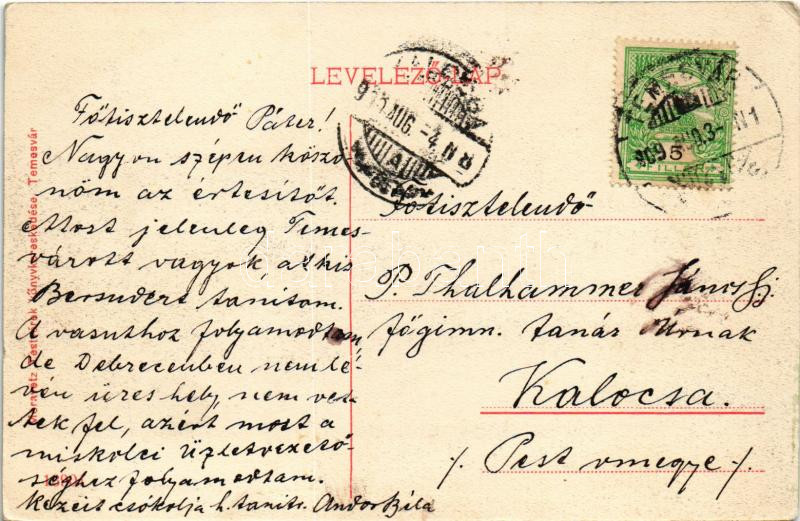 LEVELEZŐ-LAP
Főtisztelendő Páter!
Nagyon szépen köszö-
nöm az értesítőt.
Most jelenleg Temes-
várott vagyok, a kis
tanítom.
A vasuthoz folyamodtam,
de Debreczenben nemlé-
vén üres hely, nem vet-
tek fel, azért most a
miskolci Üzletvezető-
séghez folyamodtam.
Kezeit csókolja h. tanítv. Andor Béla
Főtisztelendő
P. Thalhammer János S.J.
főgimn. tanár Úrnak
Kalocsa.
/. Pest vmegye /.
Könyvkereskedése, Temesvár
5
FILLÉR